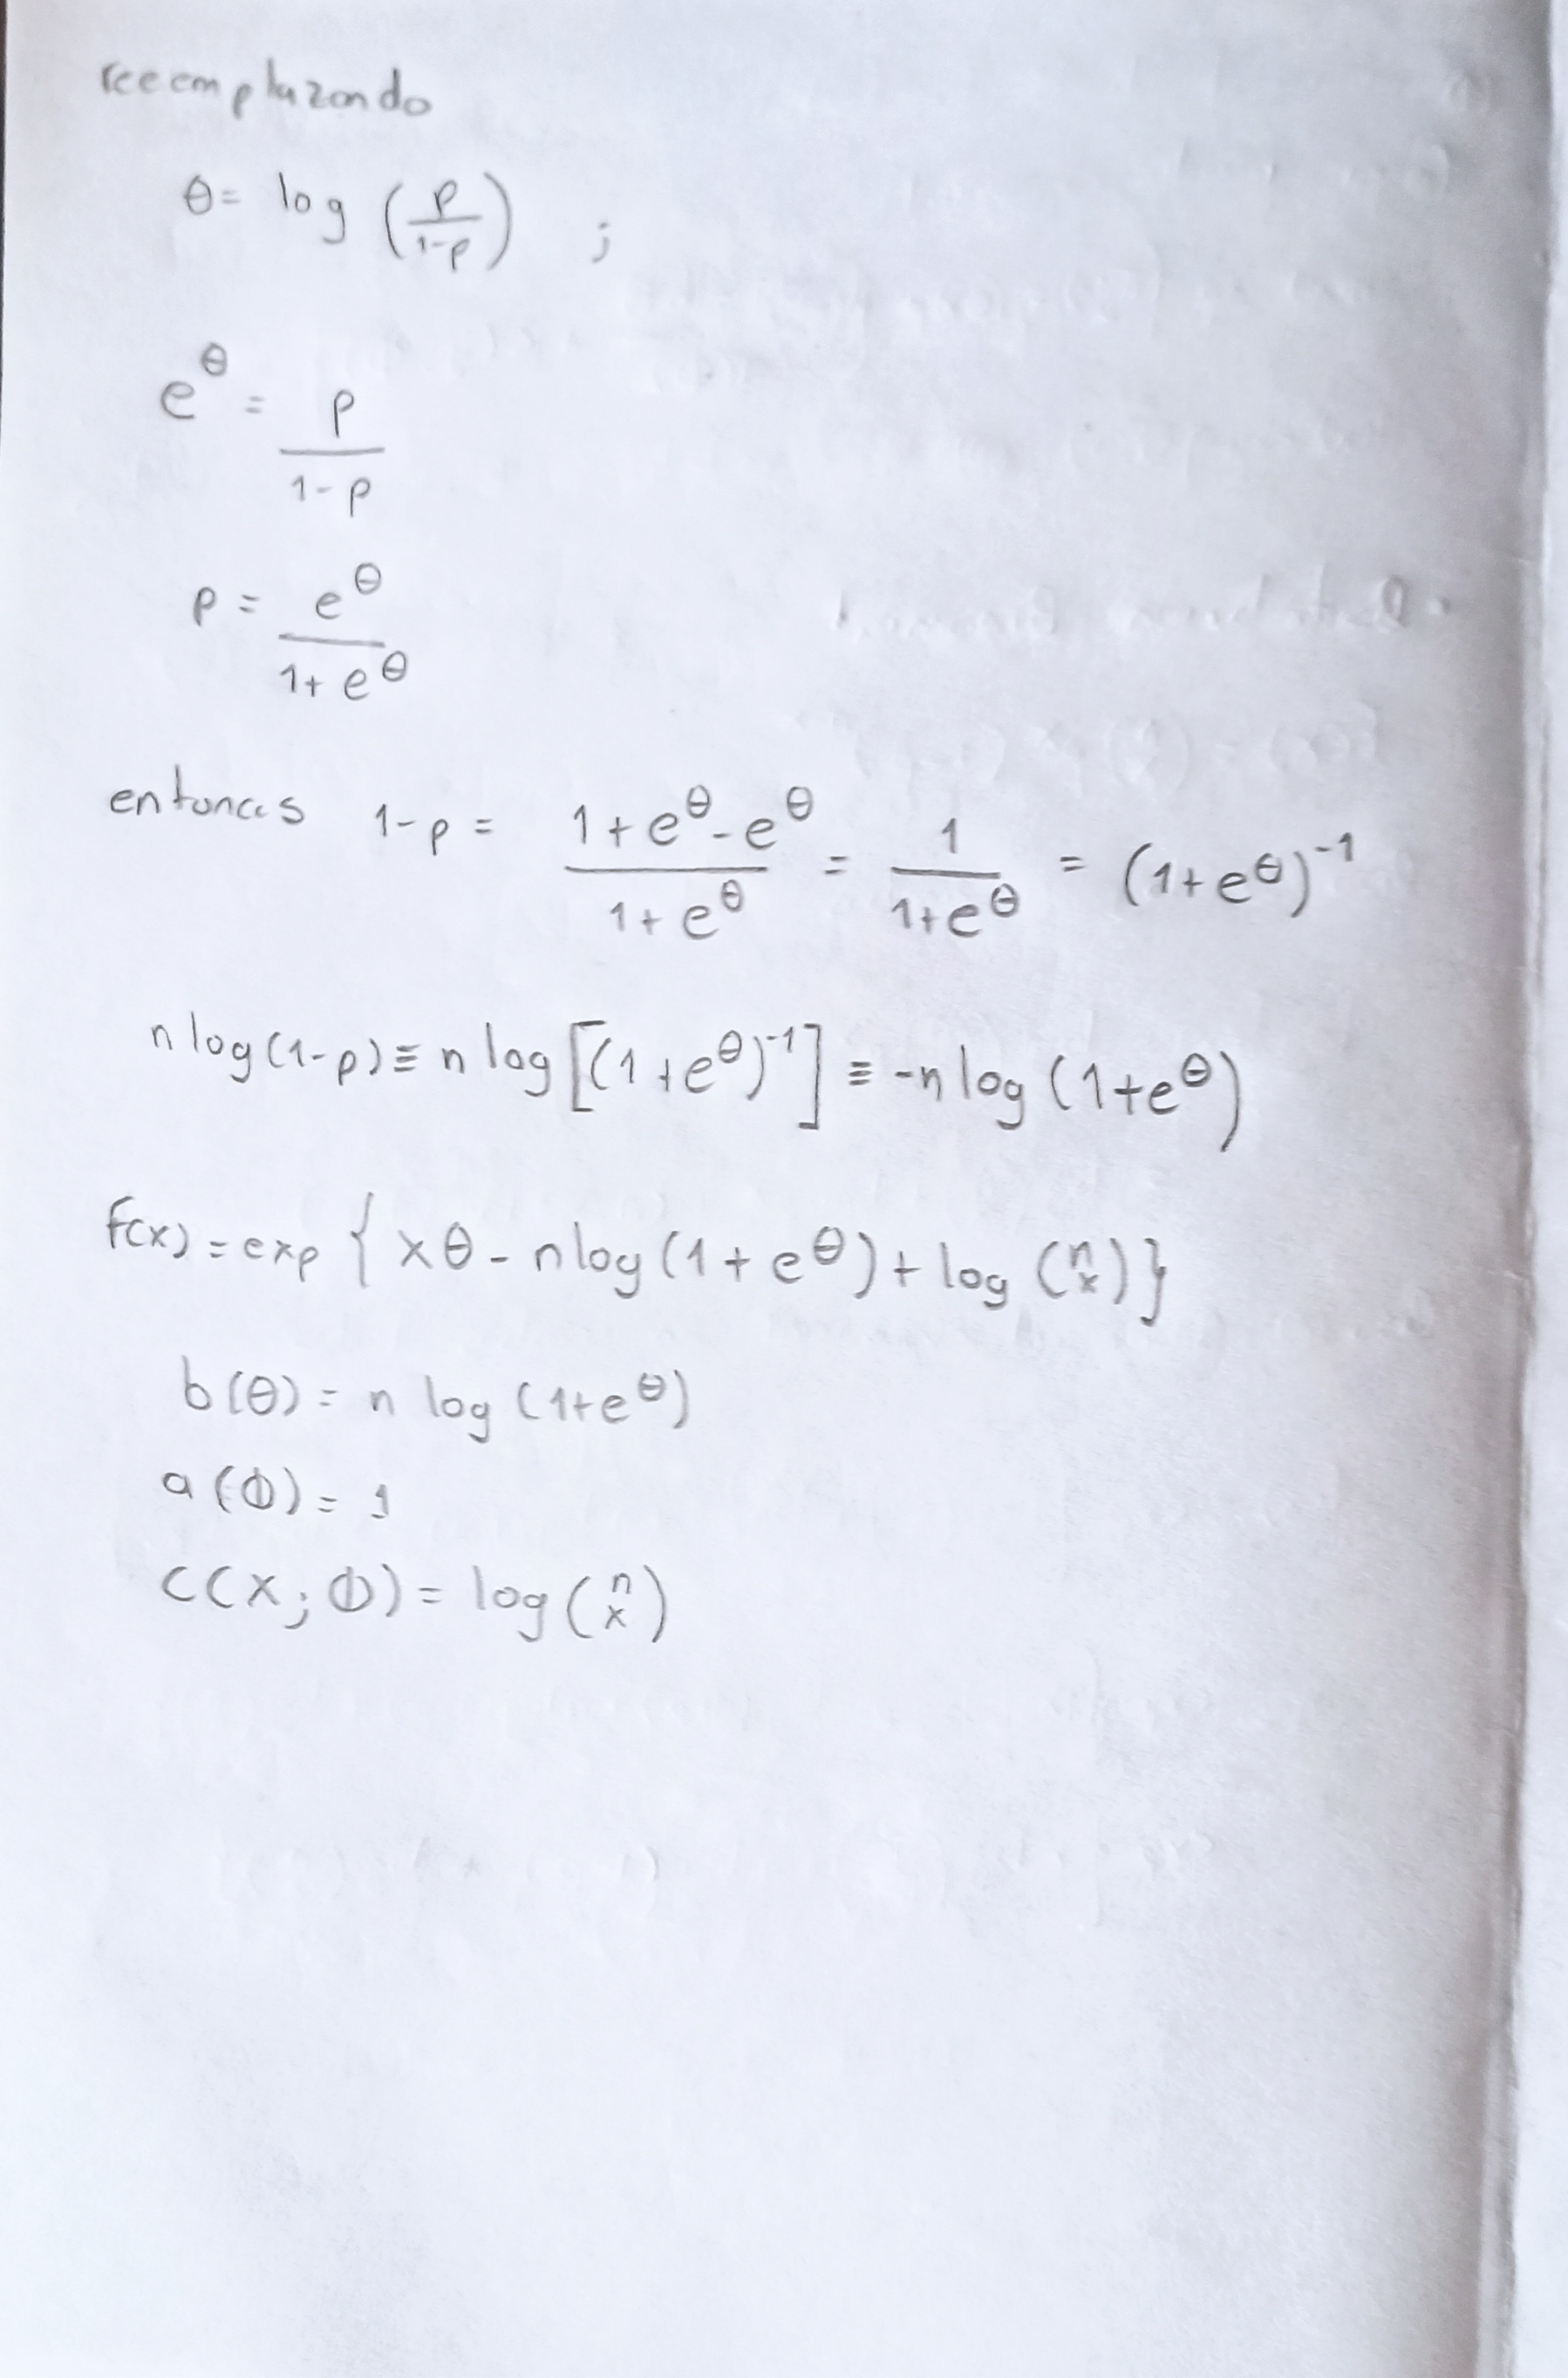 reemplazando
θ = log (p/1-p) ;
e^θ = p/1-p
p = e^θ/1+e^θ
entonces 1-p = 1+e^θ-e^θ/1+e^θ = 1/1+e^θ = (1+e^θ)^-1
n log(1-p) ≡ n log[(1+e^θ)^-1] ≡ -n log(1+e^θ)
f(x) = exp { xθ - n log(1+e^θ) + log (n x) }
b(θ) = n log (1+e^θ)
a(Φ) = 1
c(x; Φ) = log (n x)